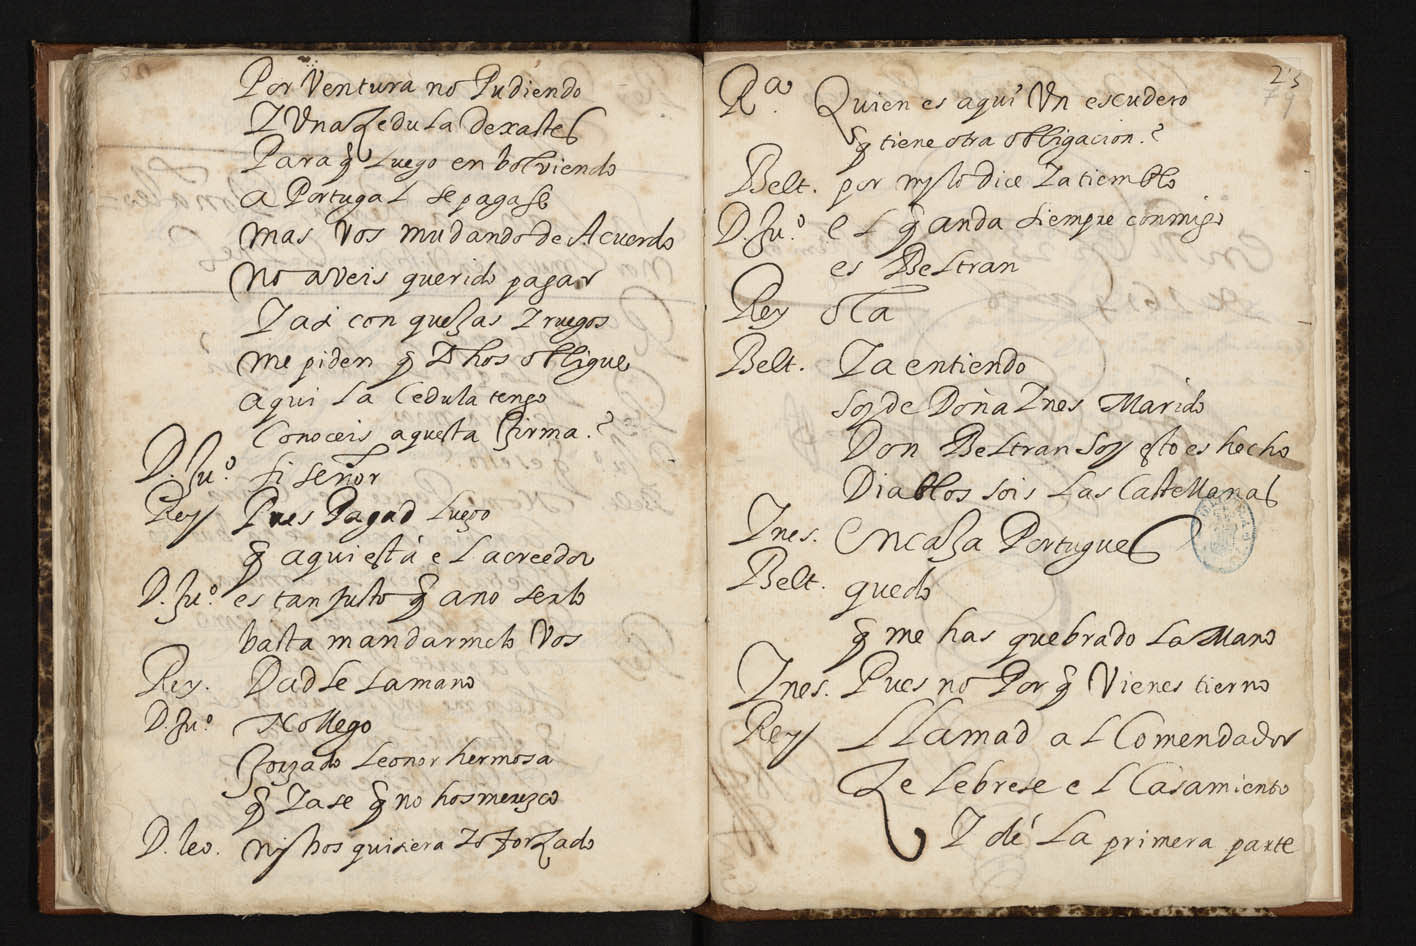 Por Ventura no Pudiendo
I Una zedula dexastes
Para q̃ Luego en bolviendo
a Portugal se pagase
mas Vos mudando de Acuerdo
no aveis querido pagar
I asi con quexas I ruegos
me piden q̃ hos obligue
aqui La Cedula tengo
Conoceis aquesta firma.?
D. Ju.º si señor
Rey Pues Pagad Luego
q̃ aqui está el acreedor
D. Ju.º es tan justo q̃ a no serlo
basta mandarmelo Vos
Rey. Dadle la mano
D. Ju.º No llego
forzado Leonor hermosa
q̃ Ia se q̃ no hos merezco
D. leo. ni hos quisiera Io forzado
23
Rª. Quien es aqui Un escudero
q̃ tiene otra obligacion.?
Belt. por mi lo dice Ia tiemblo
D. Ju.º el q̃ anda siempre conmigo
es Beltran
Rey ola
Belt. Ia entiendo
soy de Doña Ines Marido
Don Beltran soy esto es hecho
Diablos sois Las Castellanas
Ines. en casa Portugues
Belt. quedo
q̃ me has quebrado La Mano
Ines. Pues no Por q̃ Vienes tierno
Rey LLamad al Comendador
Zelebrese el Casamiento
I dé La primera parte